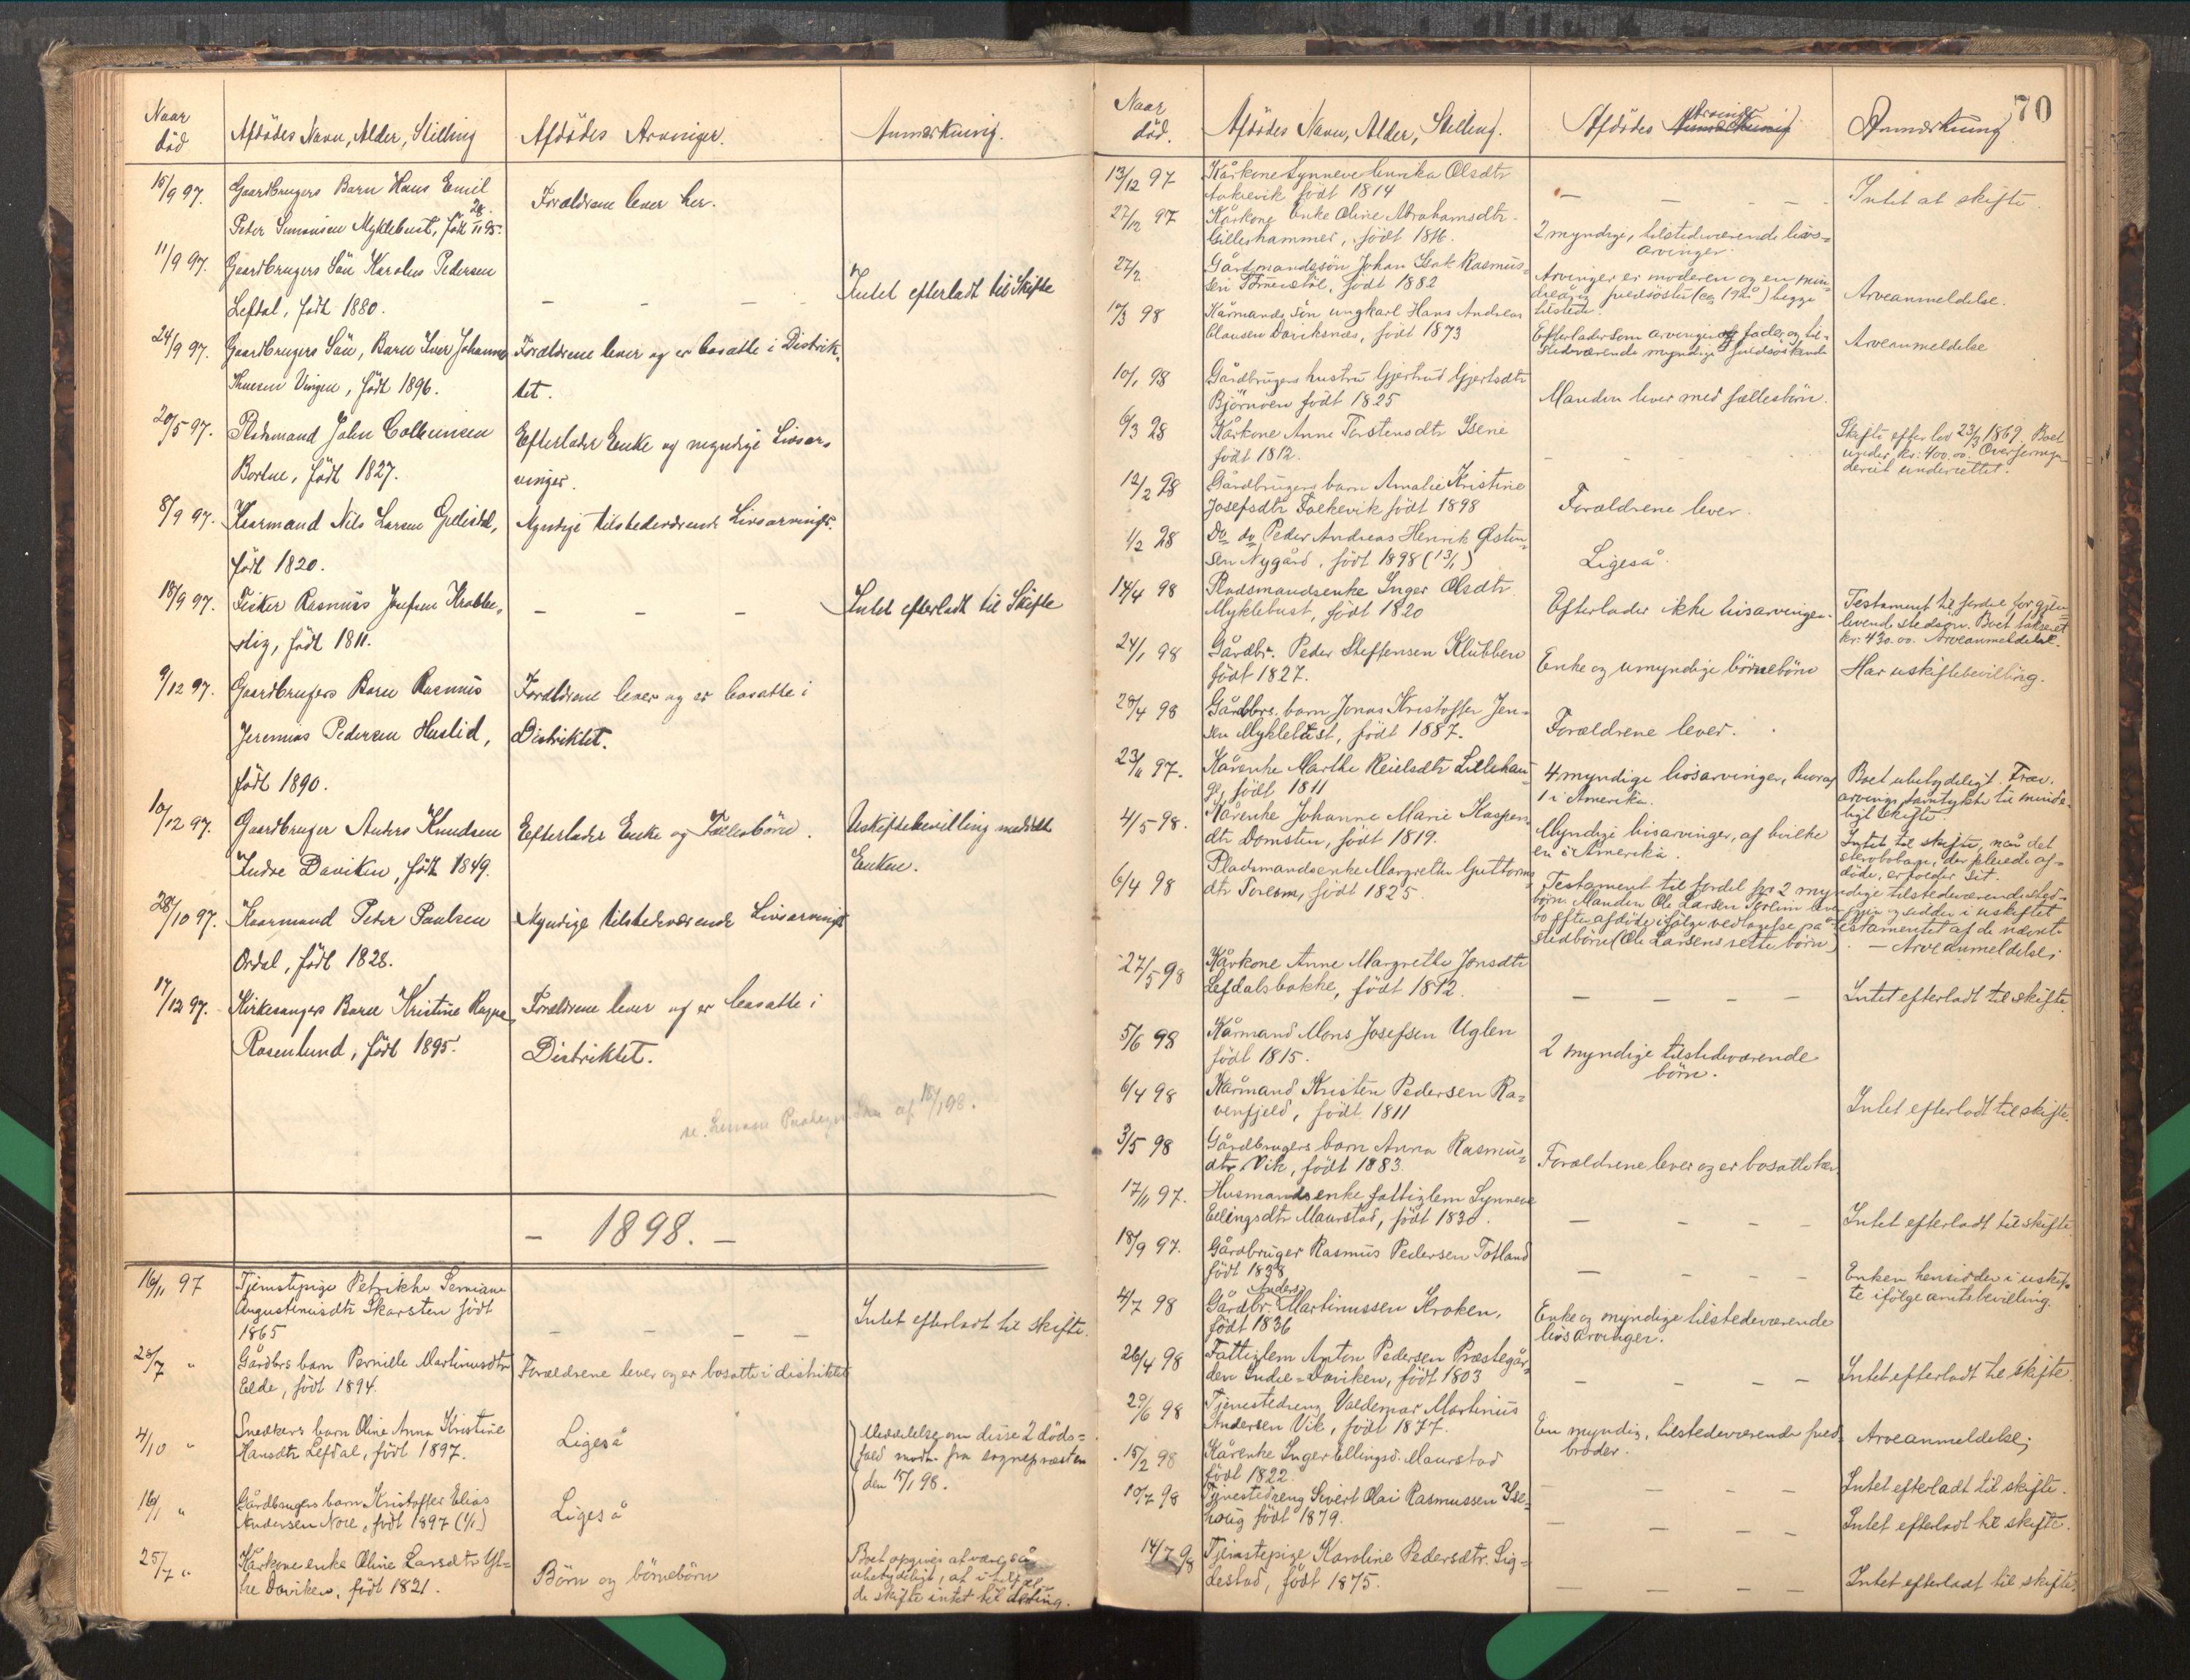 Naar død
Afdødes Navn, Alder, Stilling
Afdødes Arvinger.
Anmærkning.
15/9 97.
Gaardbrugers Barn Hans Emil
Peter Simonsen Myklebust, født 28/11 95.
Forældrene lever her.
11/9 97.
Gaardbrugers Søn Karolus Pedersen
Lefdal, født 1880.
— — — —
Intet efterladt til Skifte
24/9 97.
Gaardbrugers Søn, Barn Iver Johannes
Knutsen Vingen, født 1896.
Forældrene lever og er bosatte i Distrik-
tet.
20/5 97.
Pladsmand John Colbeinsen
Bortne, født 1827.
Efterlader Enke og myndige Livsar-
vinger.
8/9 97.
Kaarmand Nils Larsen Gillestad,
født 1820.
Myndige tilstedeværende Livsarvinger.
18/9 97.
Fisker Rasmus Josefsen Krabbe-
stig, født 1811.
— — —
Intet efterladt til Skifte
9/12 97.
Gaardbrugers Barn Rasmus
Jeremias Pedersen Huslid,
født 1890.
Forældrene lever og er bosatte i
Distriktet.
10/12 97.
Gaardbruger Anders Knudsen
Indre Daviken, født 1849.
Efterlader Enke og Fællesbørn.
Uskiftebevilling meddelt
Enken.
28/10 97.
Kaarmand Peter Paulsen
Ordal, født 1828.
Myndige tilstedeværende Livsarvinger
17/12 97.
Kirkesangers Barn Kristine Ragna
Rosenlund, født 1895.
Forældrene lever og er bosatte i
Distriktet.
af 18/1 98.
— 1898. —
16/11 97
Tjenstepige Petrikke Semiane
Augustinusdtr Skarsten født
1865
— — — —
Intet efterladt til skifte.
28/7 "
Gårdbrs barn Pernille Martinusdtr
Eide, født 1894.
Forældrene lever og er bosatte i distriktet
4/10 "
Snedkers barn Oline Anna Kristine
Hansdtr Lefdal, født 1897.
Ligeså
Meddelelse om disse 2 døds-
fald modt. fra sognepræsten
den 15/1 98.
16/1 "
Gårdbrugers barn Kristoffer Elias
Andersen Nore, født 1897 (1/1)
Ligeså
25/7 "
Kårkone enke Oline Larsdtr Yt-
tre Daviken, født 1821.
Børn og børnebørn
Boet opgives at være så
ubetydeligt, at i tilfæl-
de skifte intet til deling.
70
Naar
død.
Afdødes Navn, Alder, Stilling.
Afdødes Arvinger
Anmærkning
13/12 97
Kårkone Synneve Henrika Olsdtr
Ankevik født 1814
— — — —
Intet at skifte.
27/12 97
Kårkone Enke Oline Abrahamsdtr
Gilleshammer, født 1816.
2 myndige, tilstedeværende livs-
arvinger.
27/2
Gårdmandssøn Johan Isak Rasmus-
sen Førnestøl, født 1882
Arvinger er moderen og en min-
dreårig fuldsøster (ca 19 år) begge
tilstede.
Arveanmeldelse.
17/3 98
Kårmands søn ungkarl Hans Andreas
Clausen Daviksnæs, født 1873
Efterlader som arvinger fader og til-
stedeværende myndige fuldsøskende
Arveanmeldelse
10/1 98
Gårdbrugers hustru Gjertrud Gjertsdtr
Bjørnøen født 1825
Manden lever med fællesbørn.
6/3 98
Kårkone Anne Torstensdtr Isene
født 1812.
— — —
Skifte efter lov 23/3 1869. Boet
under kr: 400.00. Overformyn-
deriet underrettet.
12/2 98
Gårdbrugers barn Amalie Kristine
Josefsdtr Falkevik født 1898
Forældrene lever.
1/2 98
Do do Peder Andreas Henrik Østen-
sen Nygård, født 1898 (13/1)
Ligeså.
14/4 98
Pladsmandsenke Inger Olsdtr
Myklebust, født 1820
Efterlader ikke livsarvinger.
Testament til fordel for gjen-
levende stedsøn. Boet takseret
kr: 430.00. Arveanmeldelse.
24/1 98
Gårdbr. Peder Steffensen Klubben
født 1827.
Enke og umyndige børnebørn
Har uskiftebevilling.
28/4 98
Gårdbrs. barn Jonas Kristoffer Jen-
sen Myklebust, født 1887.
Forældrene lever.
23/11 97.
Kårenke Marthe Reielsdtr Lillehau-
ge, født 1811
4 myndige livsarvinger, hvoraf
1 i Amerika.
Boet ubetydeligt. Frav.
arvings samtykke til minde-
ligt skifte.
4/5 98.
Kårenke Johanne Marie Kaspers-
dtr Domsten, født 1819.
Myndige livsarvinger, af hvilke
en i Amerika.
Intet til skifte, når det
sterbobolage, der pleiede af-
døde, erholder sit.
6/4 98
Pladsmandsenke Margrethe Guttorms-
dtr Toreim, født 1825.
Testament til fordel for 2 myndige tilstedeværende sted-
børn. Manden Ole Larsen Toreim lever igjen og sidder i uskiftet
bo efter afdøde ifølge vedtagelse på testamentet af de nævnte
stedbørn (Ole Larsens rette børn). — Arveanmeldelse;
27/5 98
Kårkone Anne Margrethe Jonsdtr
Lefdalsbakke, født 1812.
— — — —
Intet efterladt til skifte.
5/6 98
Kårmand Mons Josefsen Uglen
født 1815.
2 myndige tilstedeværende
børn.
6/4 98
Kårmand Kristen Pedersen Ra-
venfjeld, født 1811
Intet efterladt til skifte.
3/5 98
Gårdbrugers barn Anna Rasmus-
dtr Vik, født 1883.
Forældrene lever og er bosatte her
17/11 97.
Husmandsenke fattiglem Synneve
Ellingsdtr Maurstad, født 1830.
— — — —
Intet efterladt til skifte
18/9 97.
Gårdbruger Rasmus Pedersen Totland
født 1838
— — — —
Enken hensidder i uskif-
te ifølge amtsbevilling.
4/7 98
Gårdbr. Anders Martinussen Kroken,
født 1836
Enke og myndige tilstedeværende
livsarvinger.
26/4 98
Fattiglem Anton Pedersen Præstegår-
den Indre-Daviken, født 1803
— — — —
Intet efterladt til skifte
29/6 98
Tjenestedreng Valdemar Martinius
Andersen Vik, født 1877.
En myndig, tilstedeværende fuld-
broder.
Arveanmeldelse;
15/2 98
Kårenke Inger Ellingsd. Maurstad
født 1822.
— — — —
Intet efterladt til skifte.
10/7 98
Tjenestedreng Sivert Olai Rasmussen Ise-
haug født 1879.
— — — —
Intet efterladt til skifte.
14/7 98
Tjenstepige Karoline Pedersdtr. Sig-
destad, født 1875.
— — — —
Intet efterladt til skifte.